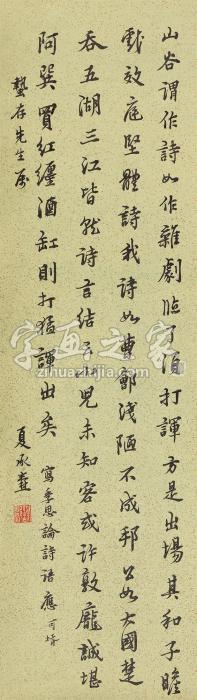 山谷謂作詩如作雜劇臨了須打諢方是出場其和子瞻
戲效庭堅體詩我詩如曹鄶淺陋不成邦公如大國楚
吞五湖三江皆就詩言結云小兒未知客或許敦龐誠堪
阿巽買紅纏酒缸則打猛諢出矣
寫季思論詩語應 可婿
蟄存先生屬
夏承燾
字画之家
zihuazhijia.com